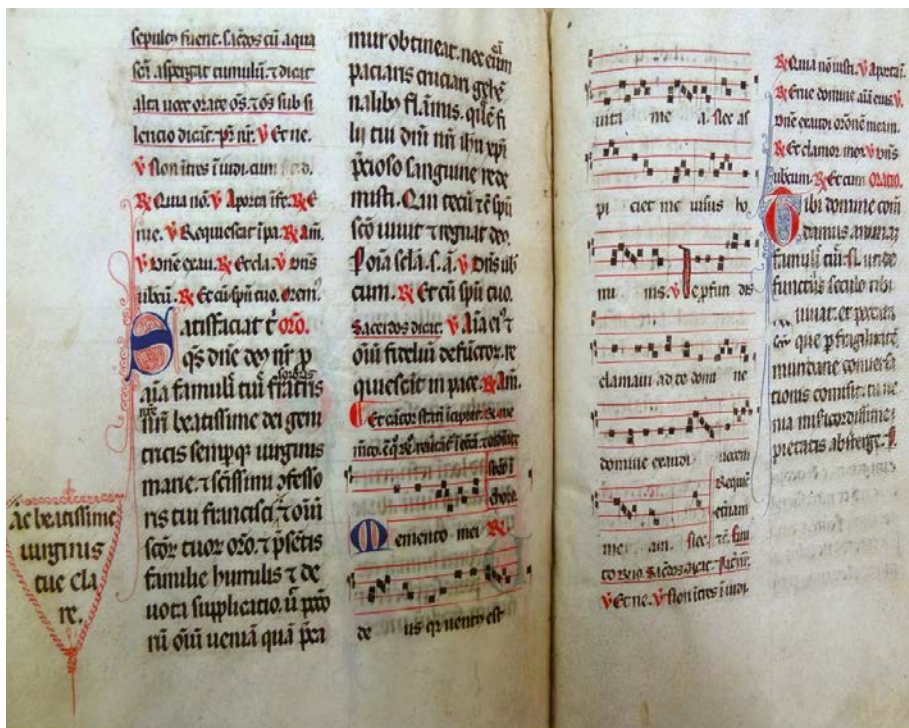 sepult9 fuerit. sacdos cū aqua
scā aspergat tumulū. ⁊ dicat
alta uoce orate oēs. ⁊ oēs sub si
lencio dicāt. pr̄ nr̄. V Et ne.
V Non ītres ī iudi. cum
R Quia nō. V A porta īfe. R E
me. V Requiescat ī pa. R Am.
V Dnē exau. R Et cla. V Dns
uobcū. R Et cū spū tuo. Orem9.
Satisfaciat t̄ orō.
qs dnē deꝯ nr̄ p
aīa famuli tui fratris
sororis
nrī beatissime dei geni
tricis sempꝙ uirginis
marie. ⁊ sc̄issimi ꝯfesso
ris tui francisci. ⁊ oīū
scōr tuor orō. ⁊ p̄sētis
familie humilis ⁊ de
uota supplicatio. ū
rū oīū ueniā quā p̄ca
Ac beatissime
uirginis
tue cla
re.
mur obtineat. nec eum
eā
paciaris cruciari gehē
nalib9 flāmis. quē fi
lii tui dnī nrī ihū xpī
p̄cioso sanguine rede
misti. Qui tecū ⁊ ē spū
scō uiuit ⁊ regnat deꝯ.
P oīa scla. s. a. V Dn̄s uob
cum. R Et cū spū tuo.
Sacerdos dicit. V Aīa ei9 ⁊
oīū fideliū defūctor. re
quiescāt in pace. R Am.
Et cātor statī īcipiat. R me
chore
Memento mei R
de us quia uent9 est
uita me a. Nec as
pi ciet me uisus ho
mi nis. V De profun dis
clamaui ad te domi ne
domine exaudi uocem
me am. Nec Requiē
eternam
Sacdos dicit.
V Et ne. V Non ītres ī iudi
R Quia nō iusti. V A porta ī.
R Erue domine aīā eius. V
Dnē exaudi orōnē meam.
R Et clamor me9. V Dn̄s
uobcum. R Et cum Oratio.
Tibi domine com̄
damus animā
famuli tui. N. ut de
functus seculo tibi
uiuat. et peccata
que p fragilitatē
mundane conuersa
tionis comisit. tu ue
nia misericordissime
pietatis absterge. P